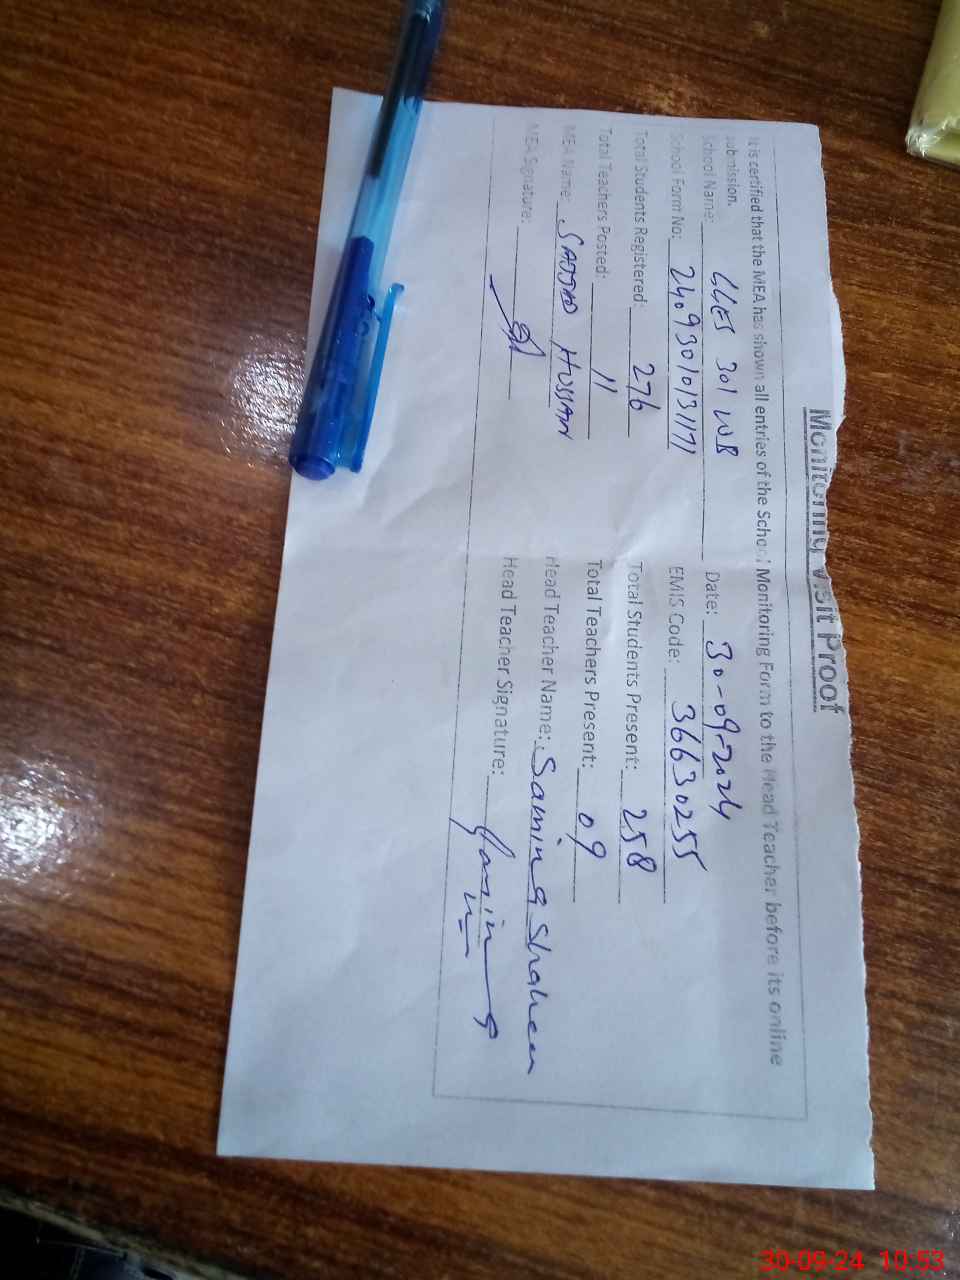 Monitoring Visit Proof
It is certified that the MEA has shown all entries of the School Monitoring Form to the Head Teacher before its online
submission.
School Name: GGES 301 WB Date: 30-09-2024
School Form No: EMIS Code: 36630255
Total Students Registered: 276 Total Students Present: 258
Total Teachers Posted: 11 Total Teachers Present: 09
MEA Name: SAJJAD HUSSAIN Head Teacher Name: Samina Shaheen
MEA Signature: Head Teacher Signature:
30-09-24 10:53